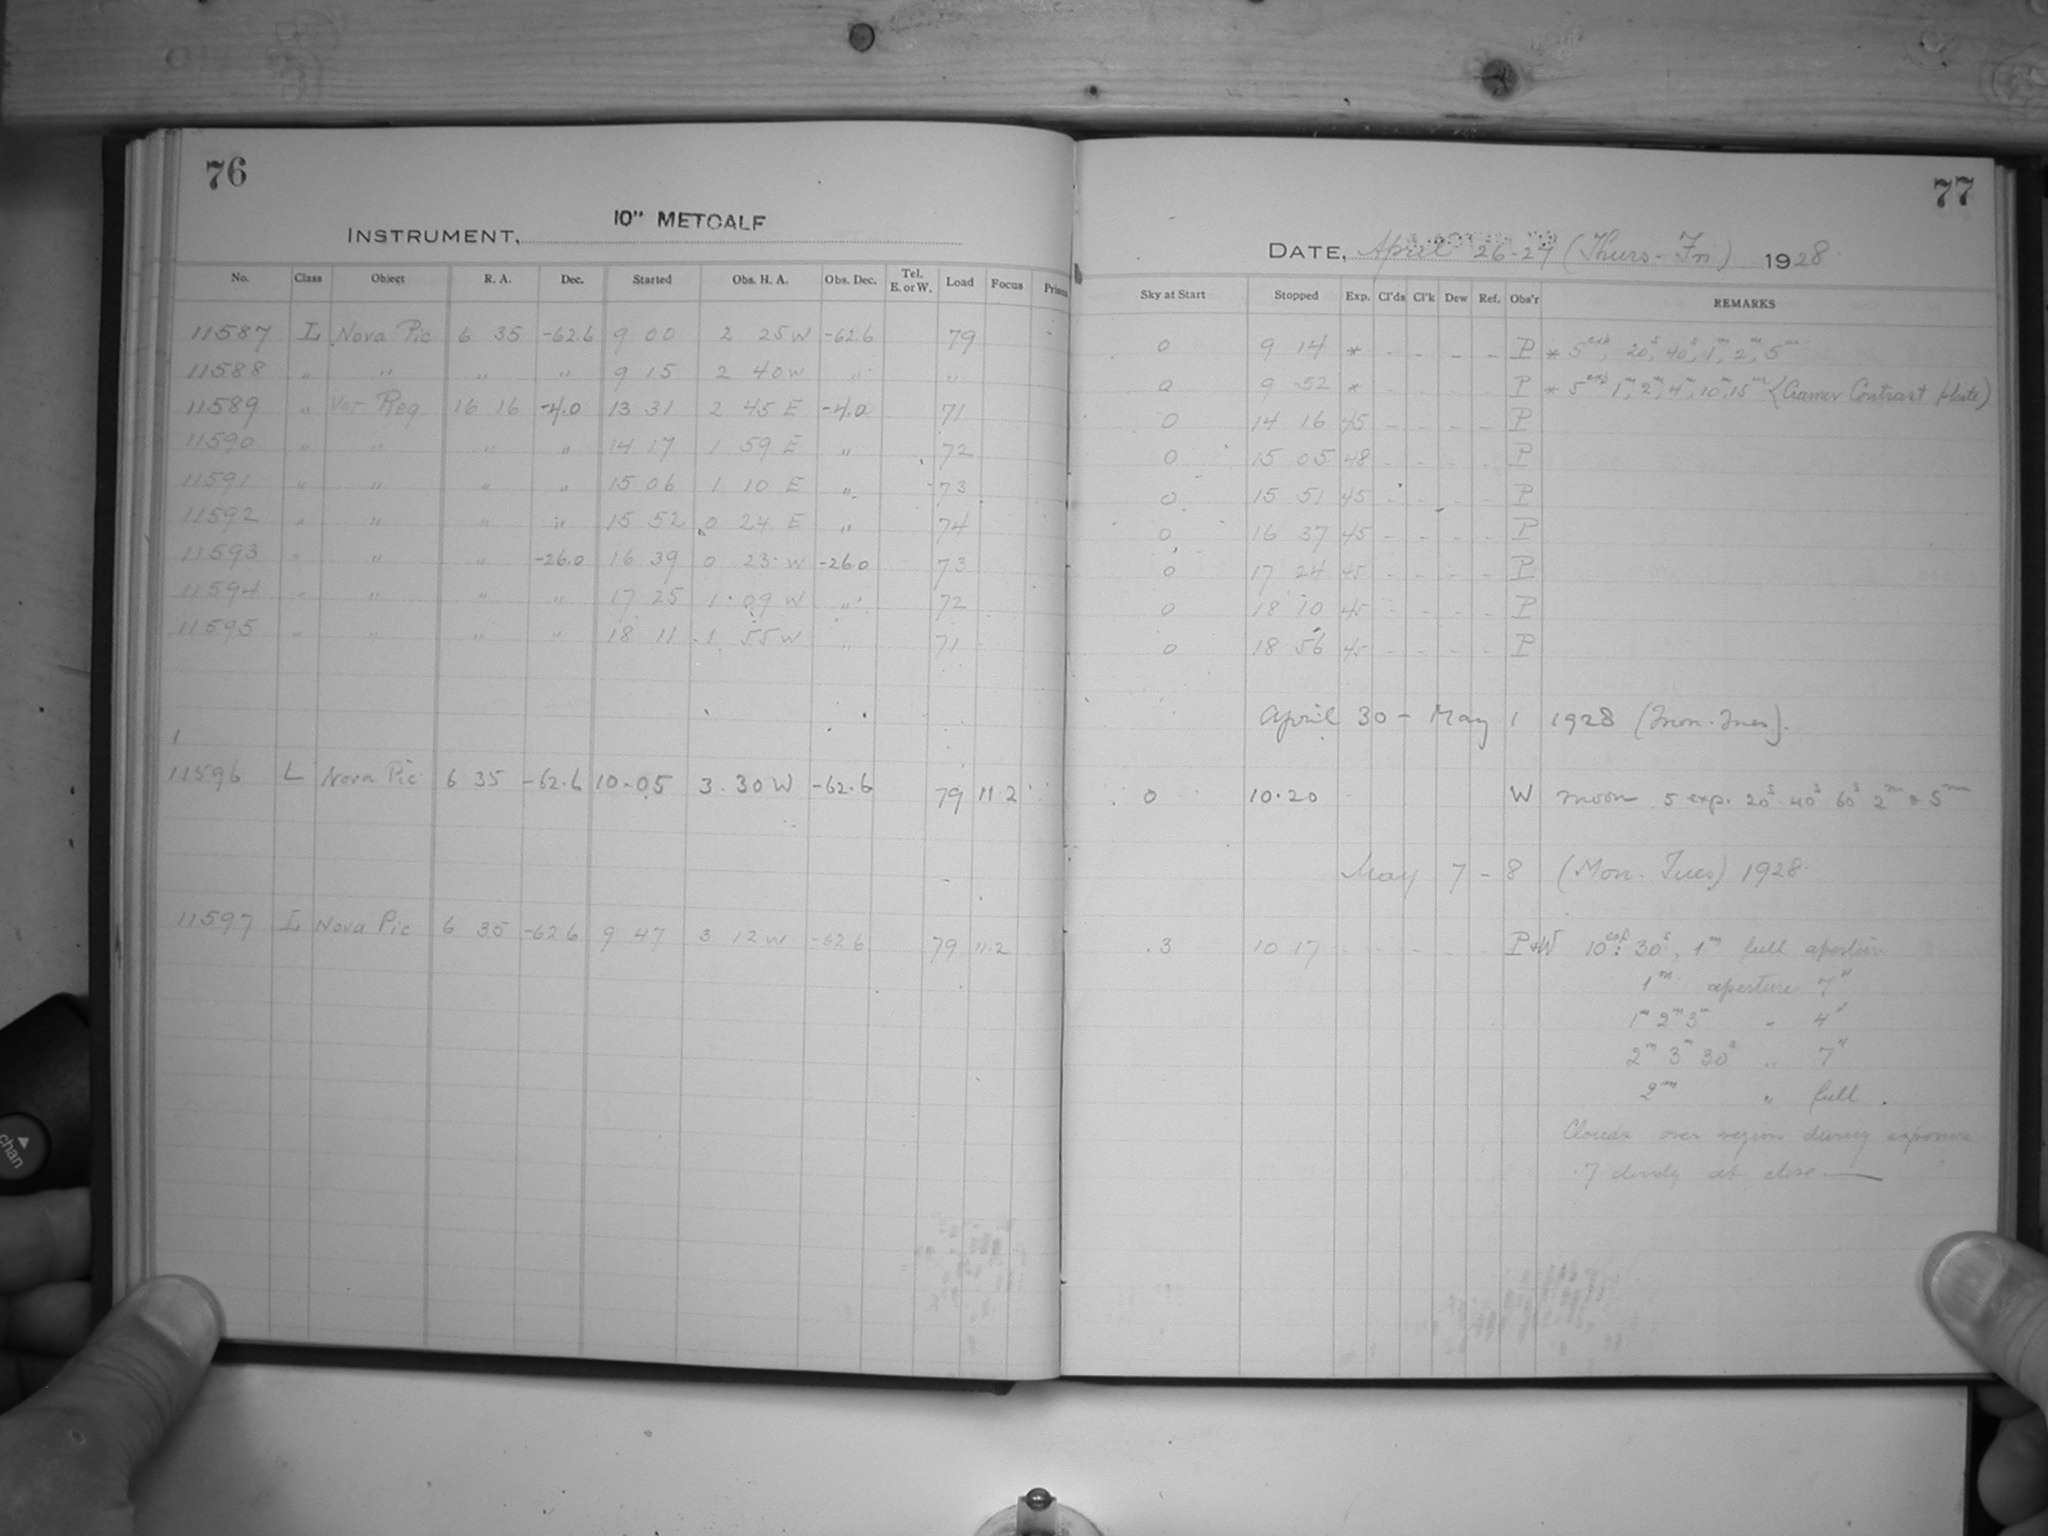 76
INSTRUMENT, 10" METCALF
No. Class Object R. A. Dec. Started Obs. H. A. Obs. Dec. Tel. E. or W. Load Focus Prism
11587 L Nova Pic 6 35 -62.6 9 00 2 25 W -62.6 79
11588 " " " " 9 15 2 40 W " "
11589 " Var Reg. 16 16 -4.0 13 31 2 45 E -4.0 71
11590 " " " " 14 17 1 59 E " 72
11591 " " " " 15 06 1 10 E " 73
11592 " " " " 15 52 0 24 E " 74
11593 " " " -26.0 16 39 0 23 W -26.0 73
11594 " " " " 17 25 1 09 W " 72
11595 " " " " 18 11 1 55 W " 71
11596 L Nova Pic 6 35 -62.6 10.05 3.30 W -62.6 79 11.2
11597 L Nova Pic 6 35 -62.6 9 47 3 12 W -62.6 79 11.2
77
DATE, April 26-27 (Thurs-Fri) 1928
Sky at Start Stopped Exp. Cl'ds Cl'k Dew Ref. Obs'r REMARKS
0 9 14 * - - - - P * 5 exp, 20s, 40s, 1m, 2m, 5m
0 9 52 * - - - - P * 5 exp 1m, 2m, 4m, 10m, 15m (Cramer Contrast Plate)
0 14 16 45 - - - - P
0 15 05 48 - - - - P
0 15 51 45 - - - - P
0 16 37 45 - - - - P
0 17 24 45 - - - - P
0 18 10 45 - - - - P
0 18 56 45 - - - - P
April 30 - May 1 1928 (Mon. Tues).
0 10.20 W moon 5 exp. 20s 40s 60s 2m & 5m
May 7 - 8 (Mon. Tues) 1928
.3 10 17 P+W 10 exp: 30s, 1m full aperture
1m aperture 7"
1m 2m 3m " 4"
2m 3m 30s " 7"
2m " full.
Clouds over region during exposure
.7 cloudy at close
chan